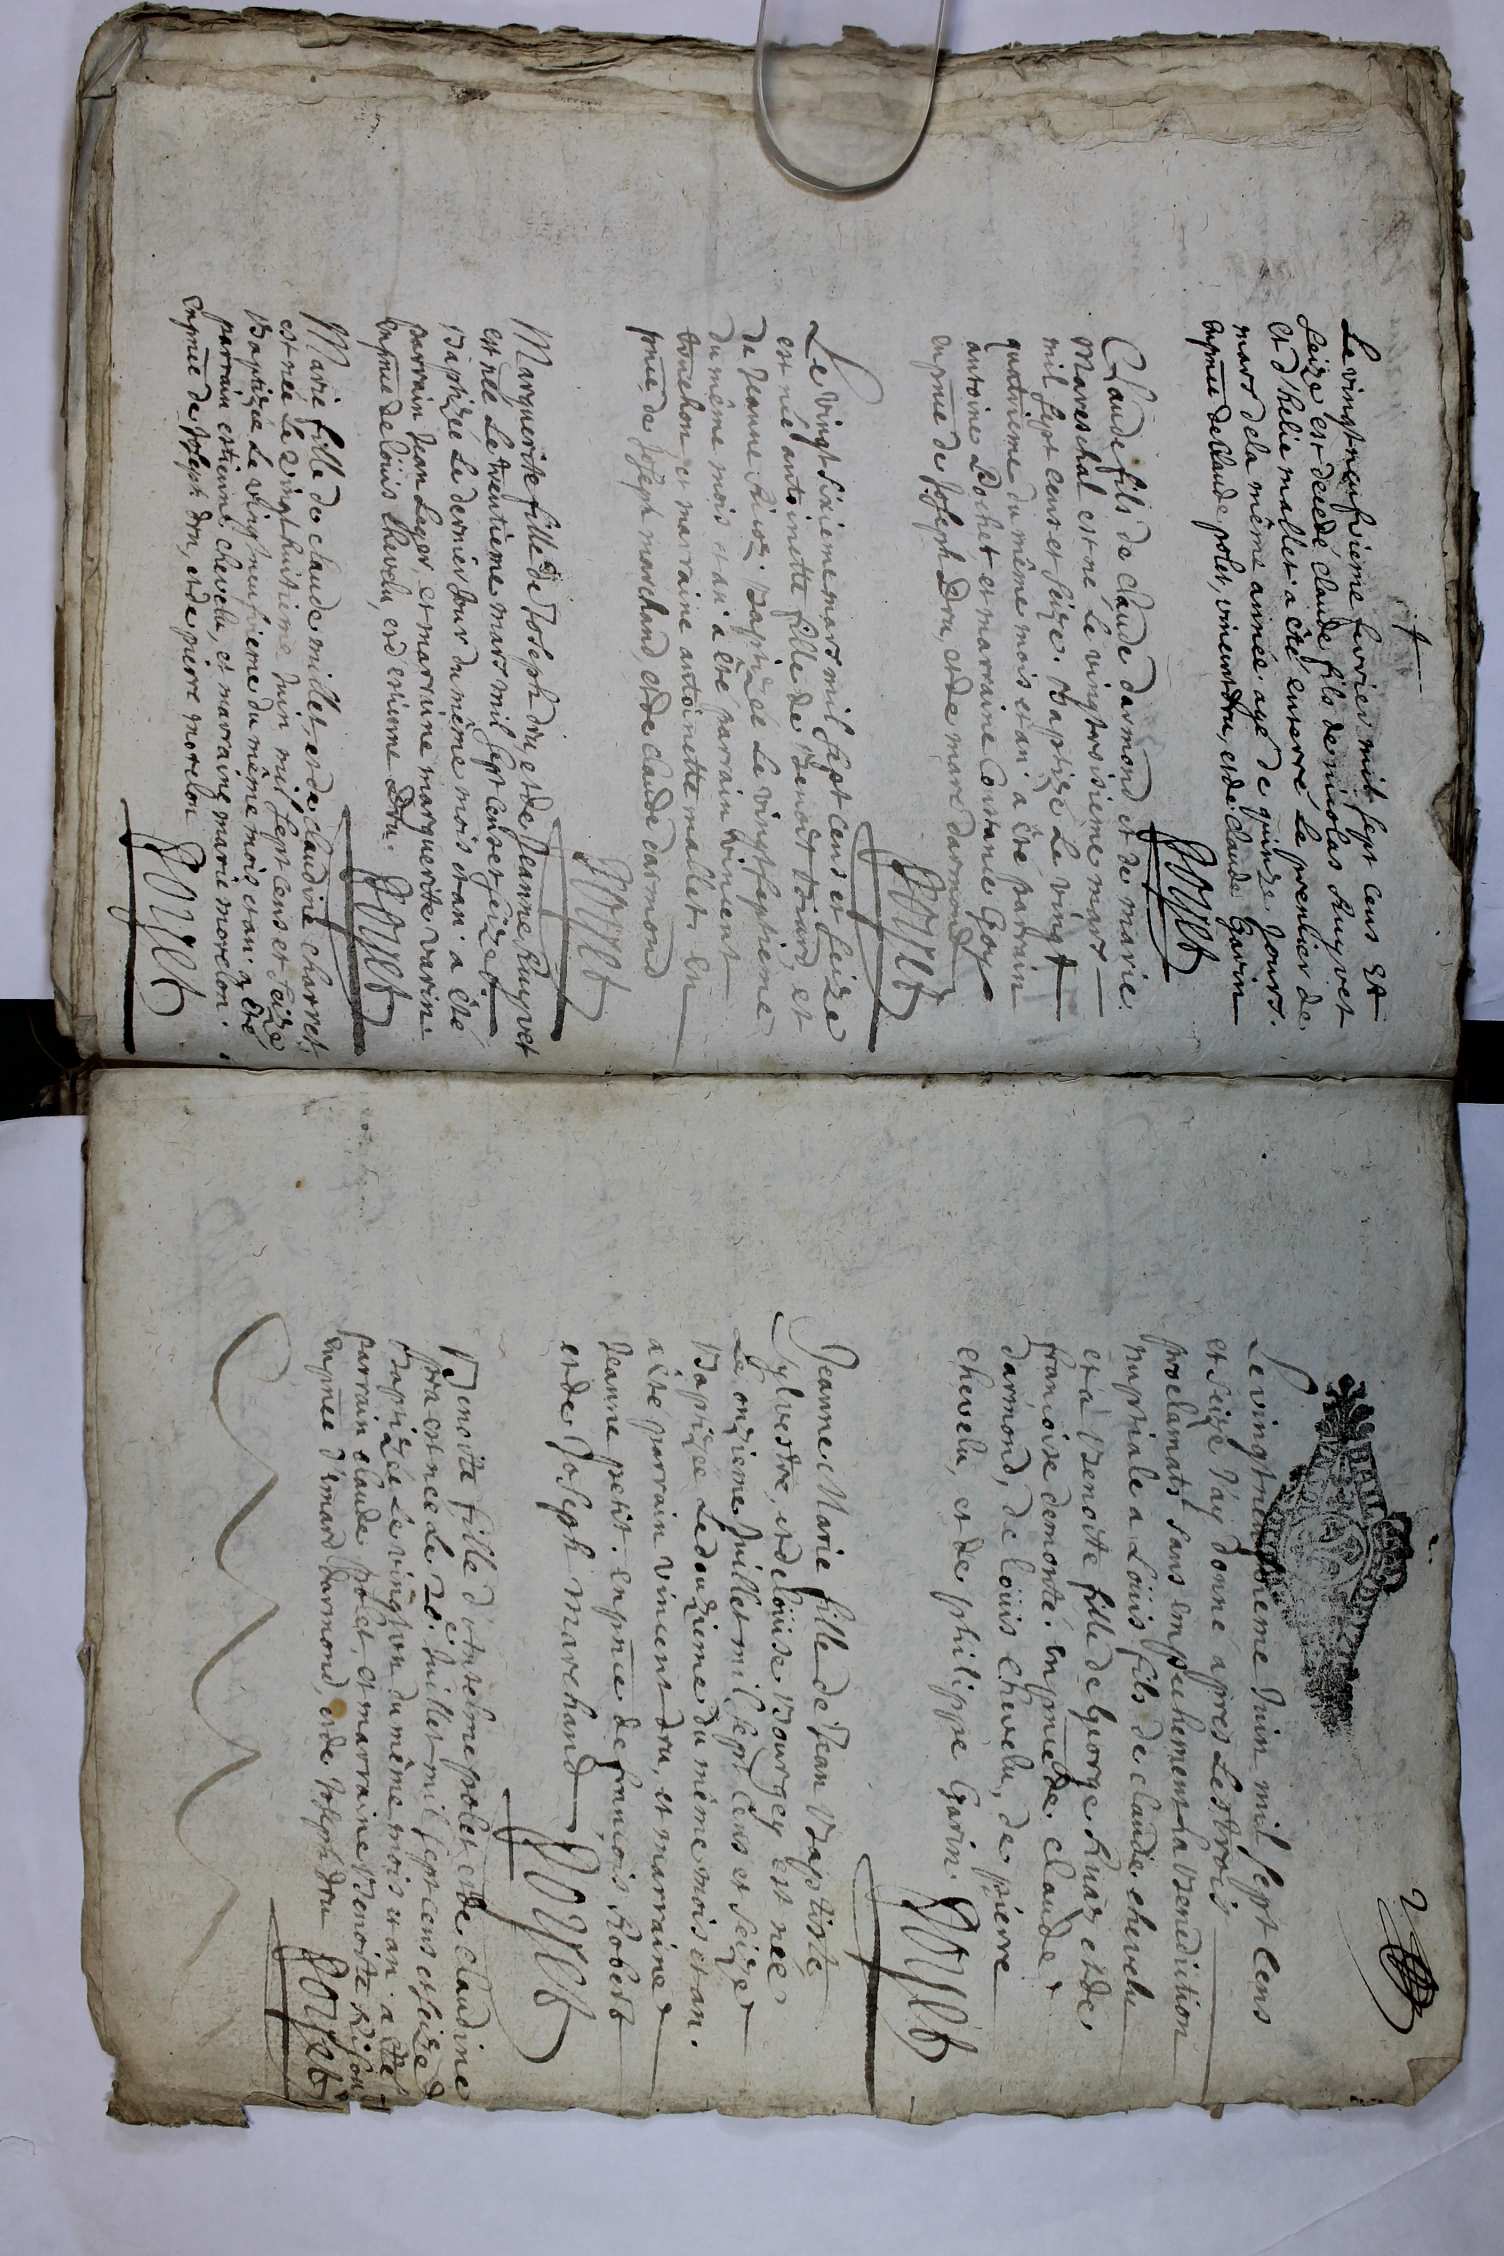 Le vingt neufvieme fevrier mil sept cens et
seize est decedé claude fils de nicolas Ruyvet
et d'helie mallet a été enterré le premier de
mars dela même année agé de quinze jours.
enpnce de claude polet, vincent dru, et de claude Garin
Goyet
Claude fils de claude darmond et de marie
mareschal est né le vingtroisieme mars
mil sept cens et seize. Baptizé le vingt
quatrieme du même mois et an. a été parrain
antoine Rochet et marraine Constance Goy
enpnce de joseph Dru, et de marc darmond
Goyet
Le vingt sixieme mars mil sept cens et seize
est née antoinette fille de Benoist Briard, et
de jeanne. Baptizée le vingt septieme
du même mois et an. a été parrain vincent
tonchon et marraine antoinette mallet. en
pnce de joseph marchand, et de claude darmond
Goyet
Marguerite fille de Joseph dru, et de jeanne Ruyvet
est née le trentieme mars mil sept cens et seize
Baptizée le dernier jour du même mois et an. a été
parrain jean Leger, et marraine marguerite varin.
enpnce de loüis chevelu, et d'estienne Dru.
Goyet
Marie fille de claude millet, et de claudine charret
est née le vingt huitieme juin mil sept cens et seize
Baptizée le vingt neufvieme du même mois et an. a été
parrain estienne chevelu, et marraine marie morelon.
enpnce de joseph dru, et de pierre morelon
Goyet
2
Le vingt neufvieme juin mil sept cens
et seize j'ay donné apres les trois
proclamats sans empechement la Benediction
nuptiale a Loüis fils de claude chevelu
et a Benoite fille de george Ruaz et de
francoise demonté. enpnce de. claude
darmond, de loüis chevelu, de pierre
chevelu, et de philippe Garin.
Goyet
Jeanne Marie fille de Jean Baptiste
Sylvestre, et de loüise Bourgey est née
Le onzieme juillet mil sept cens et seize
Baptizée Le douzieme du même mois et an.
a été parrain vincent dru, et marraine
jeanne petit. enpnce de francois Robert
et de Joseph marchand
Goyet
Benoite fille d'antelme polet et de claudine
est née le 20e. juillet mil sept cens et seize
Baptizée le vingt un du même mois et an a été
parrain claude polet, et marraine Benoite
enpnce d'emard darmond, et de joseph dru
Goyet